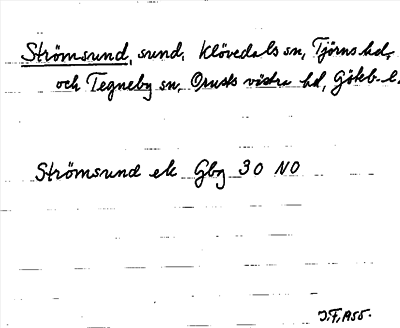 Strömsund, sund, Klövedals sn, Tjörns hd,
och Tegneby sn, Orusts västra hd, Götéb. l.
Strömsund ek Gbg 30 NO
J.F. 1955.